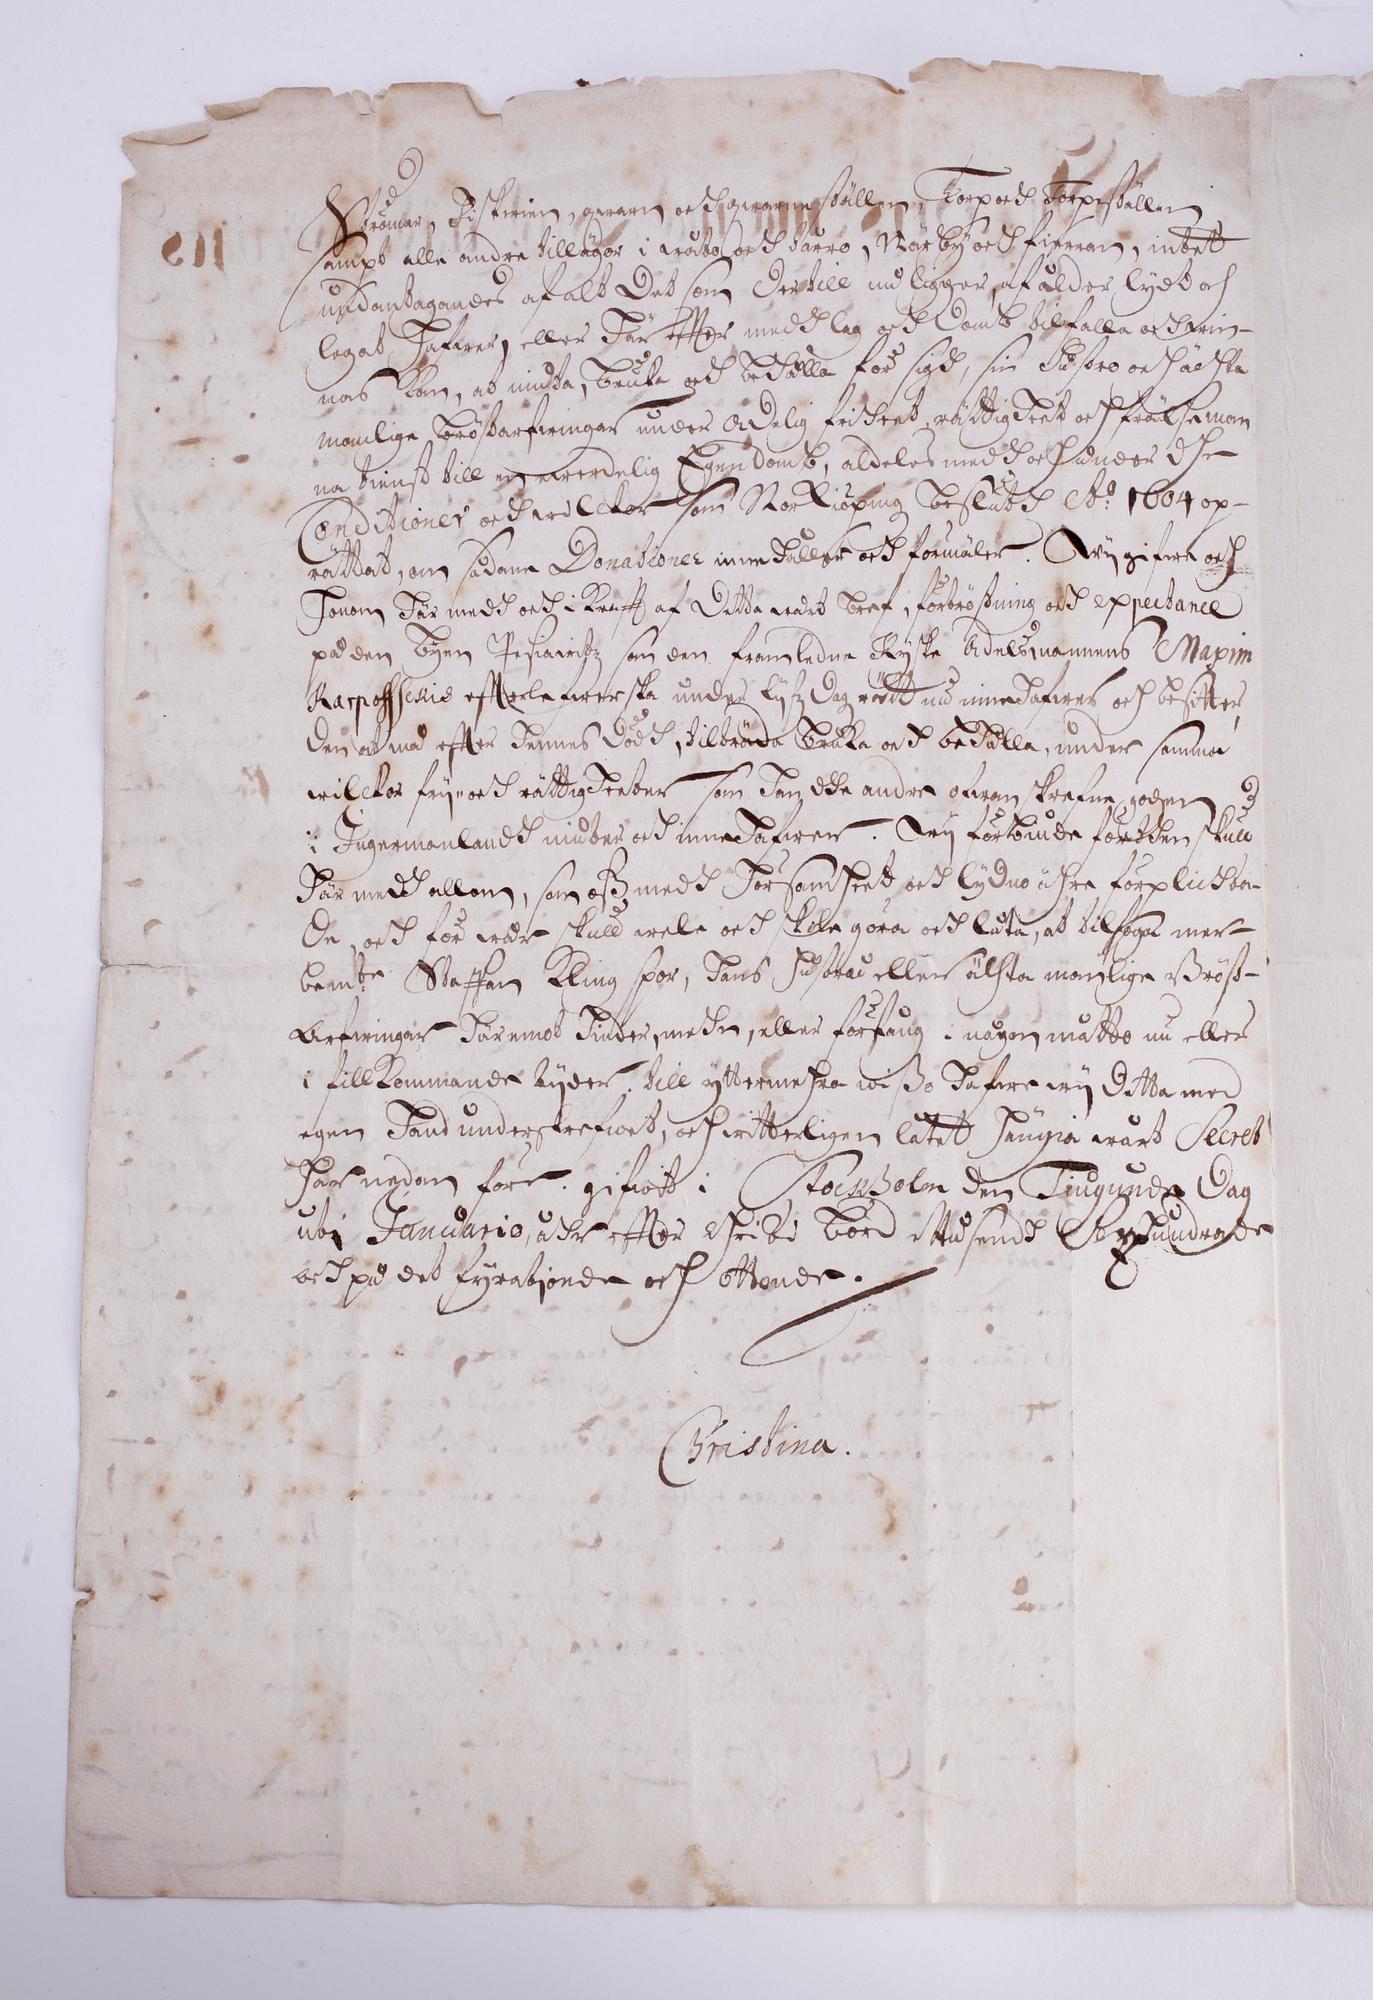 Strömar, Fiskerier, qwarn och qwarneställen, Torp och Torpeställen
sampt alla andra tillägor i wåto och torro, När by och fierran, intett
undantagandes af alt det som der till nu ligger, af ålder lydt och
legat hafwer, eller här effter medh lag och domb tilfalla och win-
nas kan, at niuta, bruka och behålla för sigh, sin hustro och ächta
manlige bröstarfwingar under adelig frijheet, rättigheet och frälseman
na tienst till en ewerdelig Egendomb, aldeles medh och under dhe
Conditioner och wilckor som Norkiöping besluth Ao. 1604 op-
rättat, om sådane Donationer innehåller och förmäler. Wij gifwe och
honom här medh och i krafft af detta wårt bref, förtröstning och expectance
på den byen som den framledne Ryske Adelsmannens Maxim
Karpoffsenis effterlefwerska under lijfz dag nu innehafwer och besitter,
den at må effter hennes dödh, tilträda bruka och behålla, under samma
wilckor frij- och rättigheeter som han dhe andre ofwanskrefne godzen
i Ingermanlandh niuter och innehafwer. Wij förbiude för then skuld
här medh allom, som oss medh hörsamheet och lydno ähre förplichta-
de, och för wår skuld wele och skole göra och låta, at tilfoga mer-
bem:te Staffan Klingspor, hans hustru eller ächta manlige Bröst-
Arfwingar här emot hinder, meehn, eller förfång i någon måtto nu eller
i tillkommande tijder. till yttermehra wisso hafwe wij detta med
egen hand underskrefwet, och witterligen låtet hängia wårt Secret
här nedan före. gifwett i Stockholm den Tiugunde dag
uti Januario, åhr effter Christi börd ettusendh Sexhundrade
och på det fyratijonde och ottonde.
Christina.